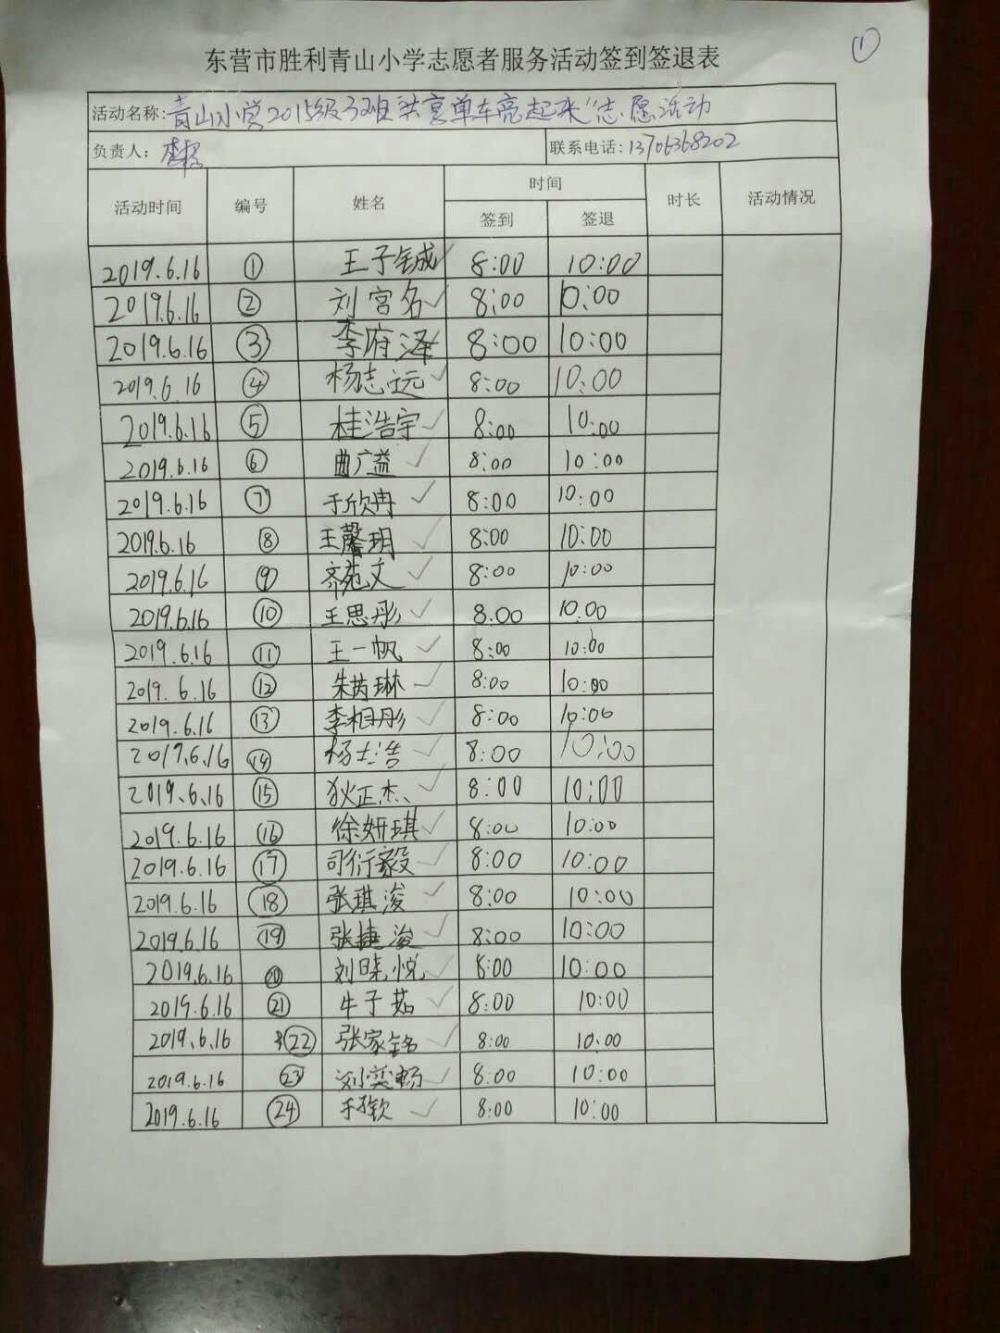 ①
东营市胜利青山小学志愿者服务活动签到签退表
活动名称:青山小学2015级3班共享单车亮起来"志愿活动
负责人: 联系电话:13706368202
活动时间 编号 姓名 时间 时长 活动情况
签到 签退
2019.6.16 ① 王子铖 8:00 10:00
2019.6.16 ② 刘宫名 8:00 10:00
2019.6.16 ③ 李府泽 8:00 10:00
2019.6.16 ④ 杨志远 8:00 10:00
2019.6.16 ⑤ 桂浩宇 8:00 10:00
2019.6.16 ⑥ 曲广益 8:00 10:00
2019.6.16 ⑦ 于欣冉 8:00 10:00
2019.6.16 ⑧ 王馨玥 8:00 10:00
2019.6.16 ⑨ 齐苑文 8:00 10:00
2019.6.16 ⑩ 王思彤 8.00 10.00
2019.6.16 ⑪ 王一帆 8:00 10:00
2019.6.16 ⑫ 朱芮琳 8:00 10:00
2019.6.16 ⑬ 李相彤 8:00 10:00
2019.6.16 ⑭ 杨士浩 8:00 10:00
2019.6.16 ⑮ 狄正杰 8:00 10:00
2019.6.16 ⑯ 徐妍琪 8:00 10:00
2019.6.16 ⑰ 司衍毅 8:00 10:00
2019.6.16 ⑱ 张琪浚 8:00 10:00
2019.6.16 ⑲ 张捷浚 8:00 10:00
2019.6.16 ⑳ 刘晓悦 8:00 10:00
2019.6.16 ㉑ 牛子茹 8:00 10:00
2019.6.16 ㉒ 张家铭 8:00 10:00
2019.6.16 ㉓ 刘奕畅 8:00 10:00
2019.6.16 ㉔ 8:00 10:00